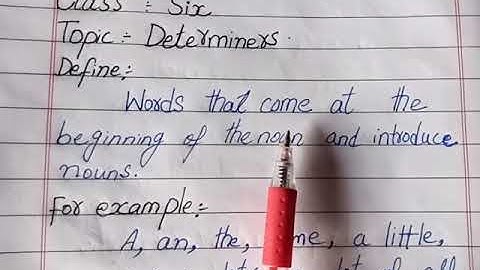 Class :- Six
Topic :- Determiners.
Define :-
Words that come at the
beginning of the noun and introduce
nouns.
For example :-
A, an, the, a little,